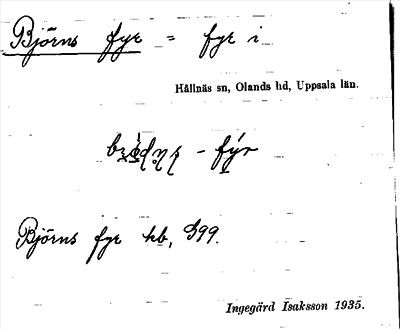 Björns fyr = fyr i
Hållnäs sn, Olands hd, Uppsala län.
- fý̱r
Björns fyr kb, 399.
Ingegärd Isaksson 1935.